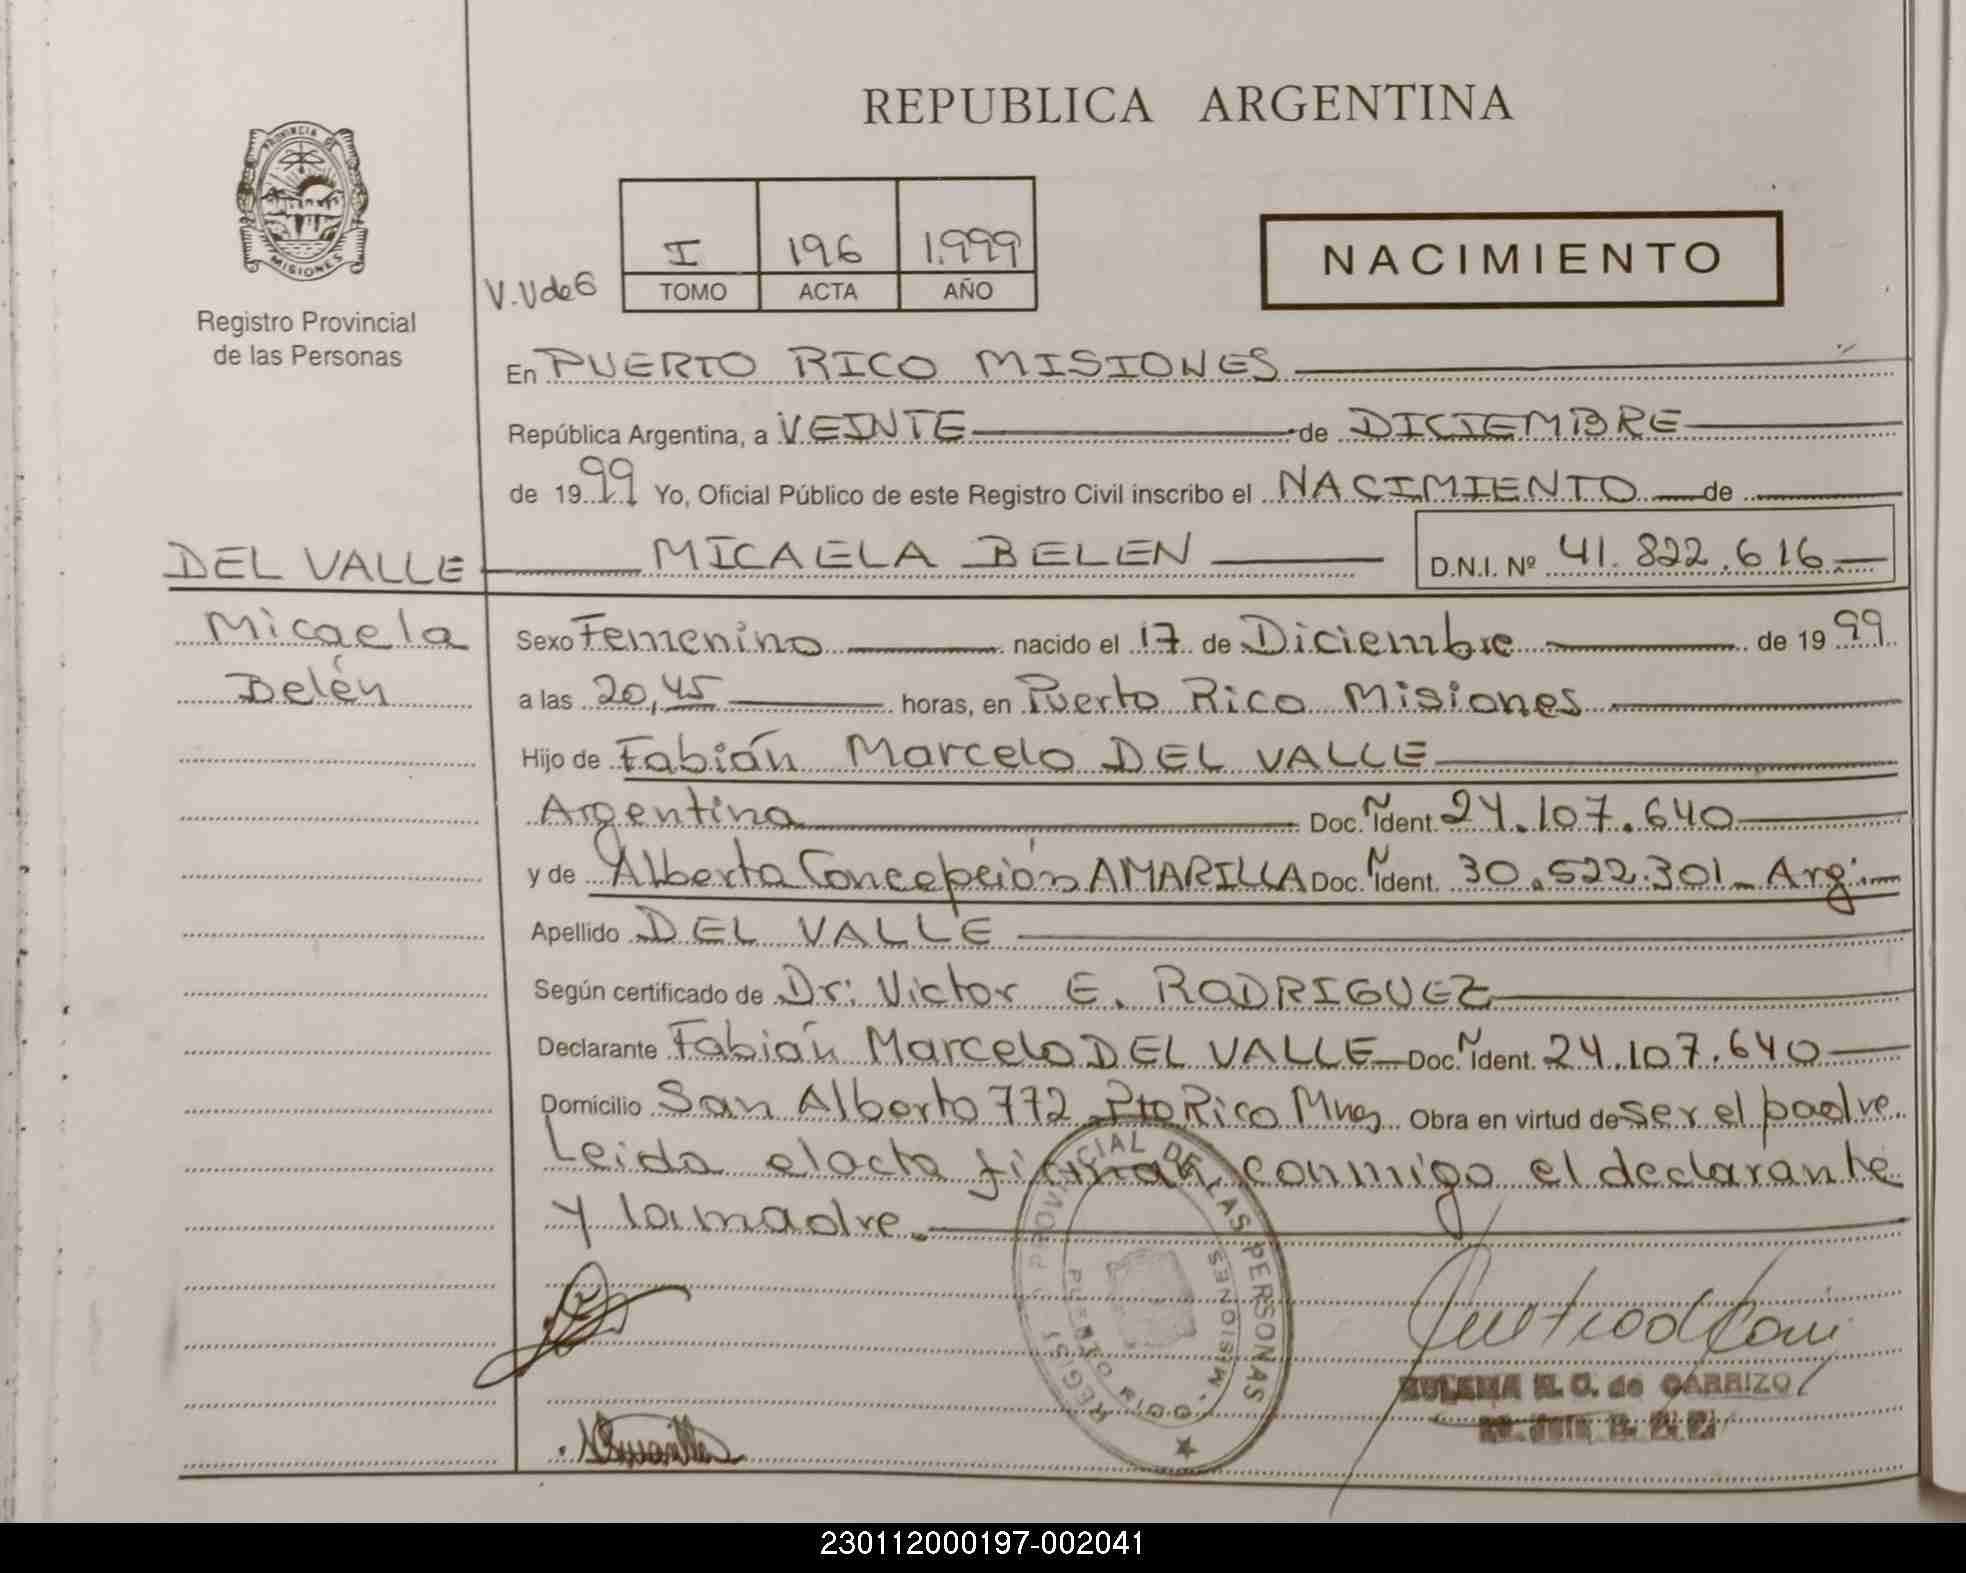 REPUBLICA ARGENTINA
PROVINCIA DE
MISIONES
Registro Provincial
de las Personas
V.Vde6
I 196 1.999
TOMO ACTA AÑO
NACIMIENTO
En PUERTO RICO MISIONES
República Argentina, a VEINTE de DICIEMBRE
de 1999 Yo, Oficial Público de este Registro Civil inscribo el NACIMIENTO de
DEL VALLE MICAELA BELEN D.N.I. Nº 41.822.616
Micaela
Belén
Sexo Femenino nacido el 17 de Diciembre de 1999
a las 20,45 horas, en Puerto Rico Misiones
Hijo de Fabián Marcelo DEL VALLE
Argentina Doc. Ñ Ident. 24.107.640
y de Alberta Concepción AMARILLA Doc. Ñ Ident. 30.522.301 Arg.
Apellido DEL VALLE
Según certificado de Dr. Victor E. RODRIGUEZ
Declarante Fabián Marcelo DEL VALLE Doc. Ñ Ident. 24.107.640
Domicilio San Alberto 772 Pto Rico Mnes Obra en virtud de ser el padre.
Leida el acta firman conmigo el declarante
y la madre.
REGISTRO PROVINCIAL DE LAS PERSONAS
PUERTO RICO - MISIONES
de CARRIZO
230112000197-002041